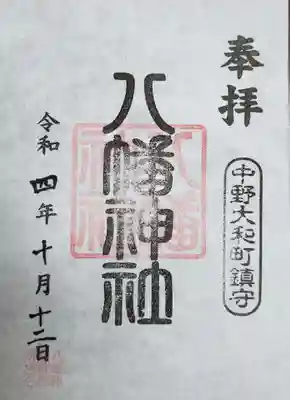 奉拝
中野大和町鎮守
八幡神社
令和四年十月十二日